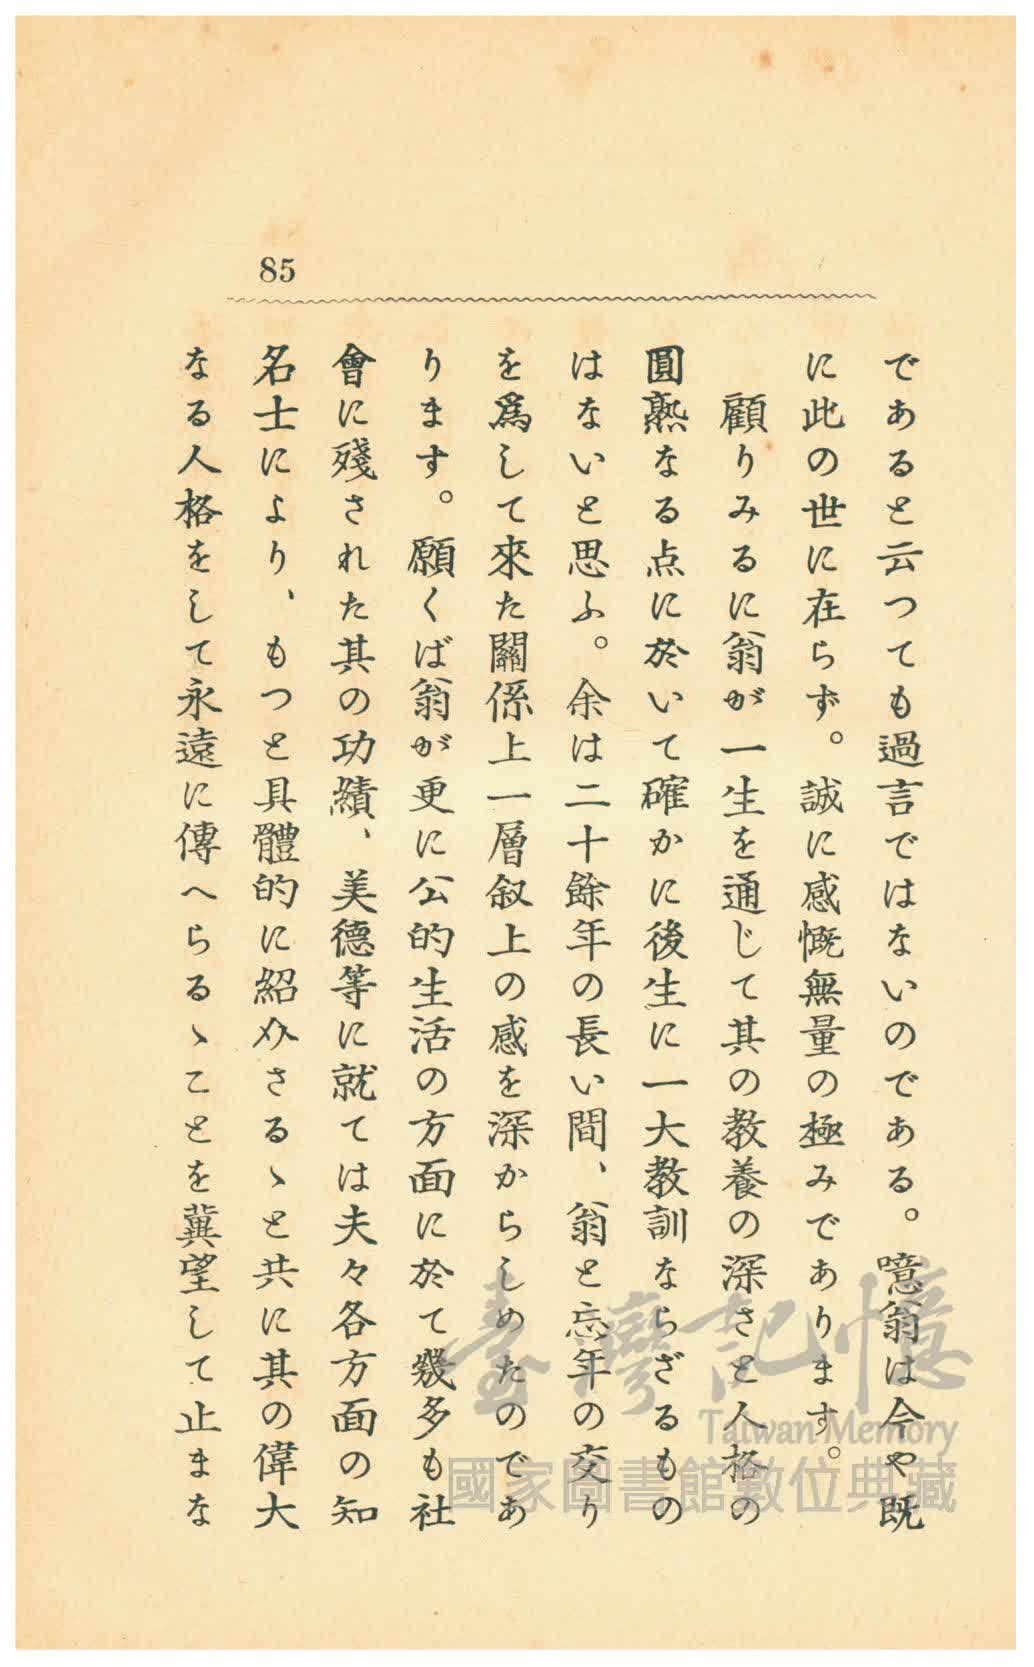 85
であると云つても過言ではないのである。噫翁は今や既
に此の世に在らず。誠に感慨無量の極みであります。
顧りみるに翁が一生を通じて其の教養の深さと人格の
圓熟なる点に於いて確かに後生に一大教訓ならざるもの
はないと思ふ。余は二十餘年の長い間、翁と忘年の交り
を爲して來た關係上一層叙上の感を深からしめたのであ
ります。願くば翁が更に公的生活の方面に於て幾多も社
會に殘された其の功績、美德等に就ては夫々各方面の知
名士により、もつと具體的に紹介さるゝと共に其の偉大
なる人格をして永遠に傳へらるゝことを冀望して止まな
臺灣記憶
Taiwan Memory
國家圖書館數位典藏